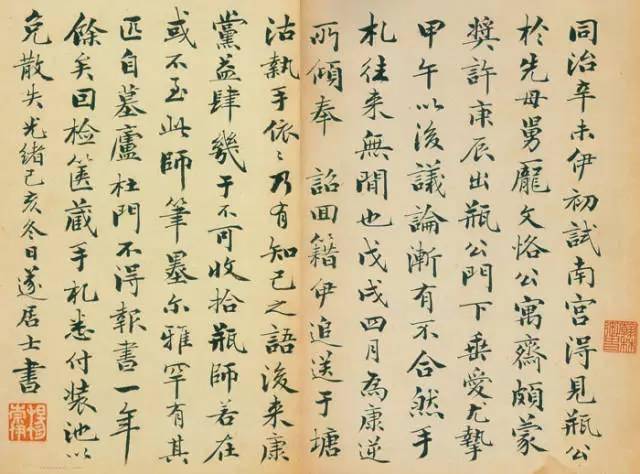 同治辛未伊初試南宮得見瓶公
於先母舅龐文恪公寓齋頗蒙
獎許庚辰出瓶公門下垂愛尤摯
甲午以後議論漸有不合然手
札往來無間也戊戌四月為康逆
所傾奉 詔回籍伊追送于塘
沽執手依〻乃有知己之語後來康
黨益肆幾于不可收拾瓶師若在
或不至此師筆墨尔雅罕有其
匹自墓廬杜門不得報書一年
餘矣回檢篋藏手札悉付裝池以
免散失光緒己亥冬日邃居士書